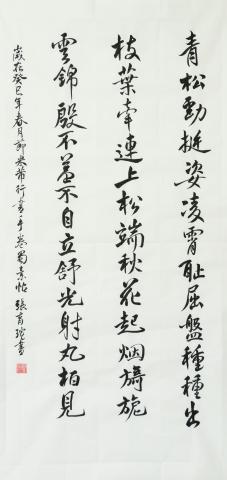 青松勁挺姿凌霄恥屈盤種種出
枝葉牽連上松端秋花起烟旖旎
雲錦殷不羞不自立舒光射丸柏見
歲在癸巳年春月節米芾行書手卷蜀素帖 張育瑄書